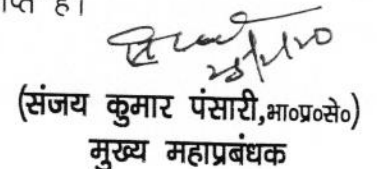 है।
25/2/20
(संजय कुमार पंसारी,भा०प्र०से०)
मुख्य महाप्रबंधक